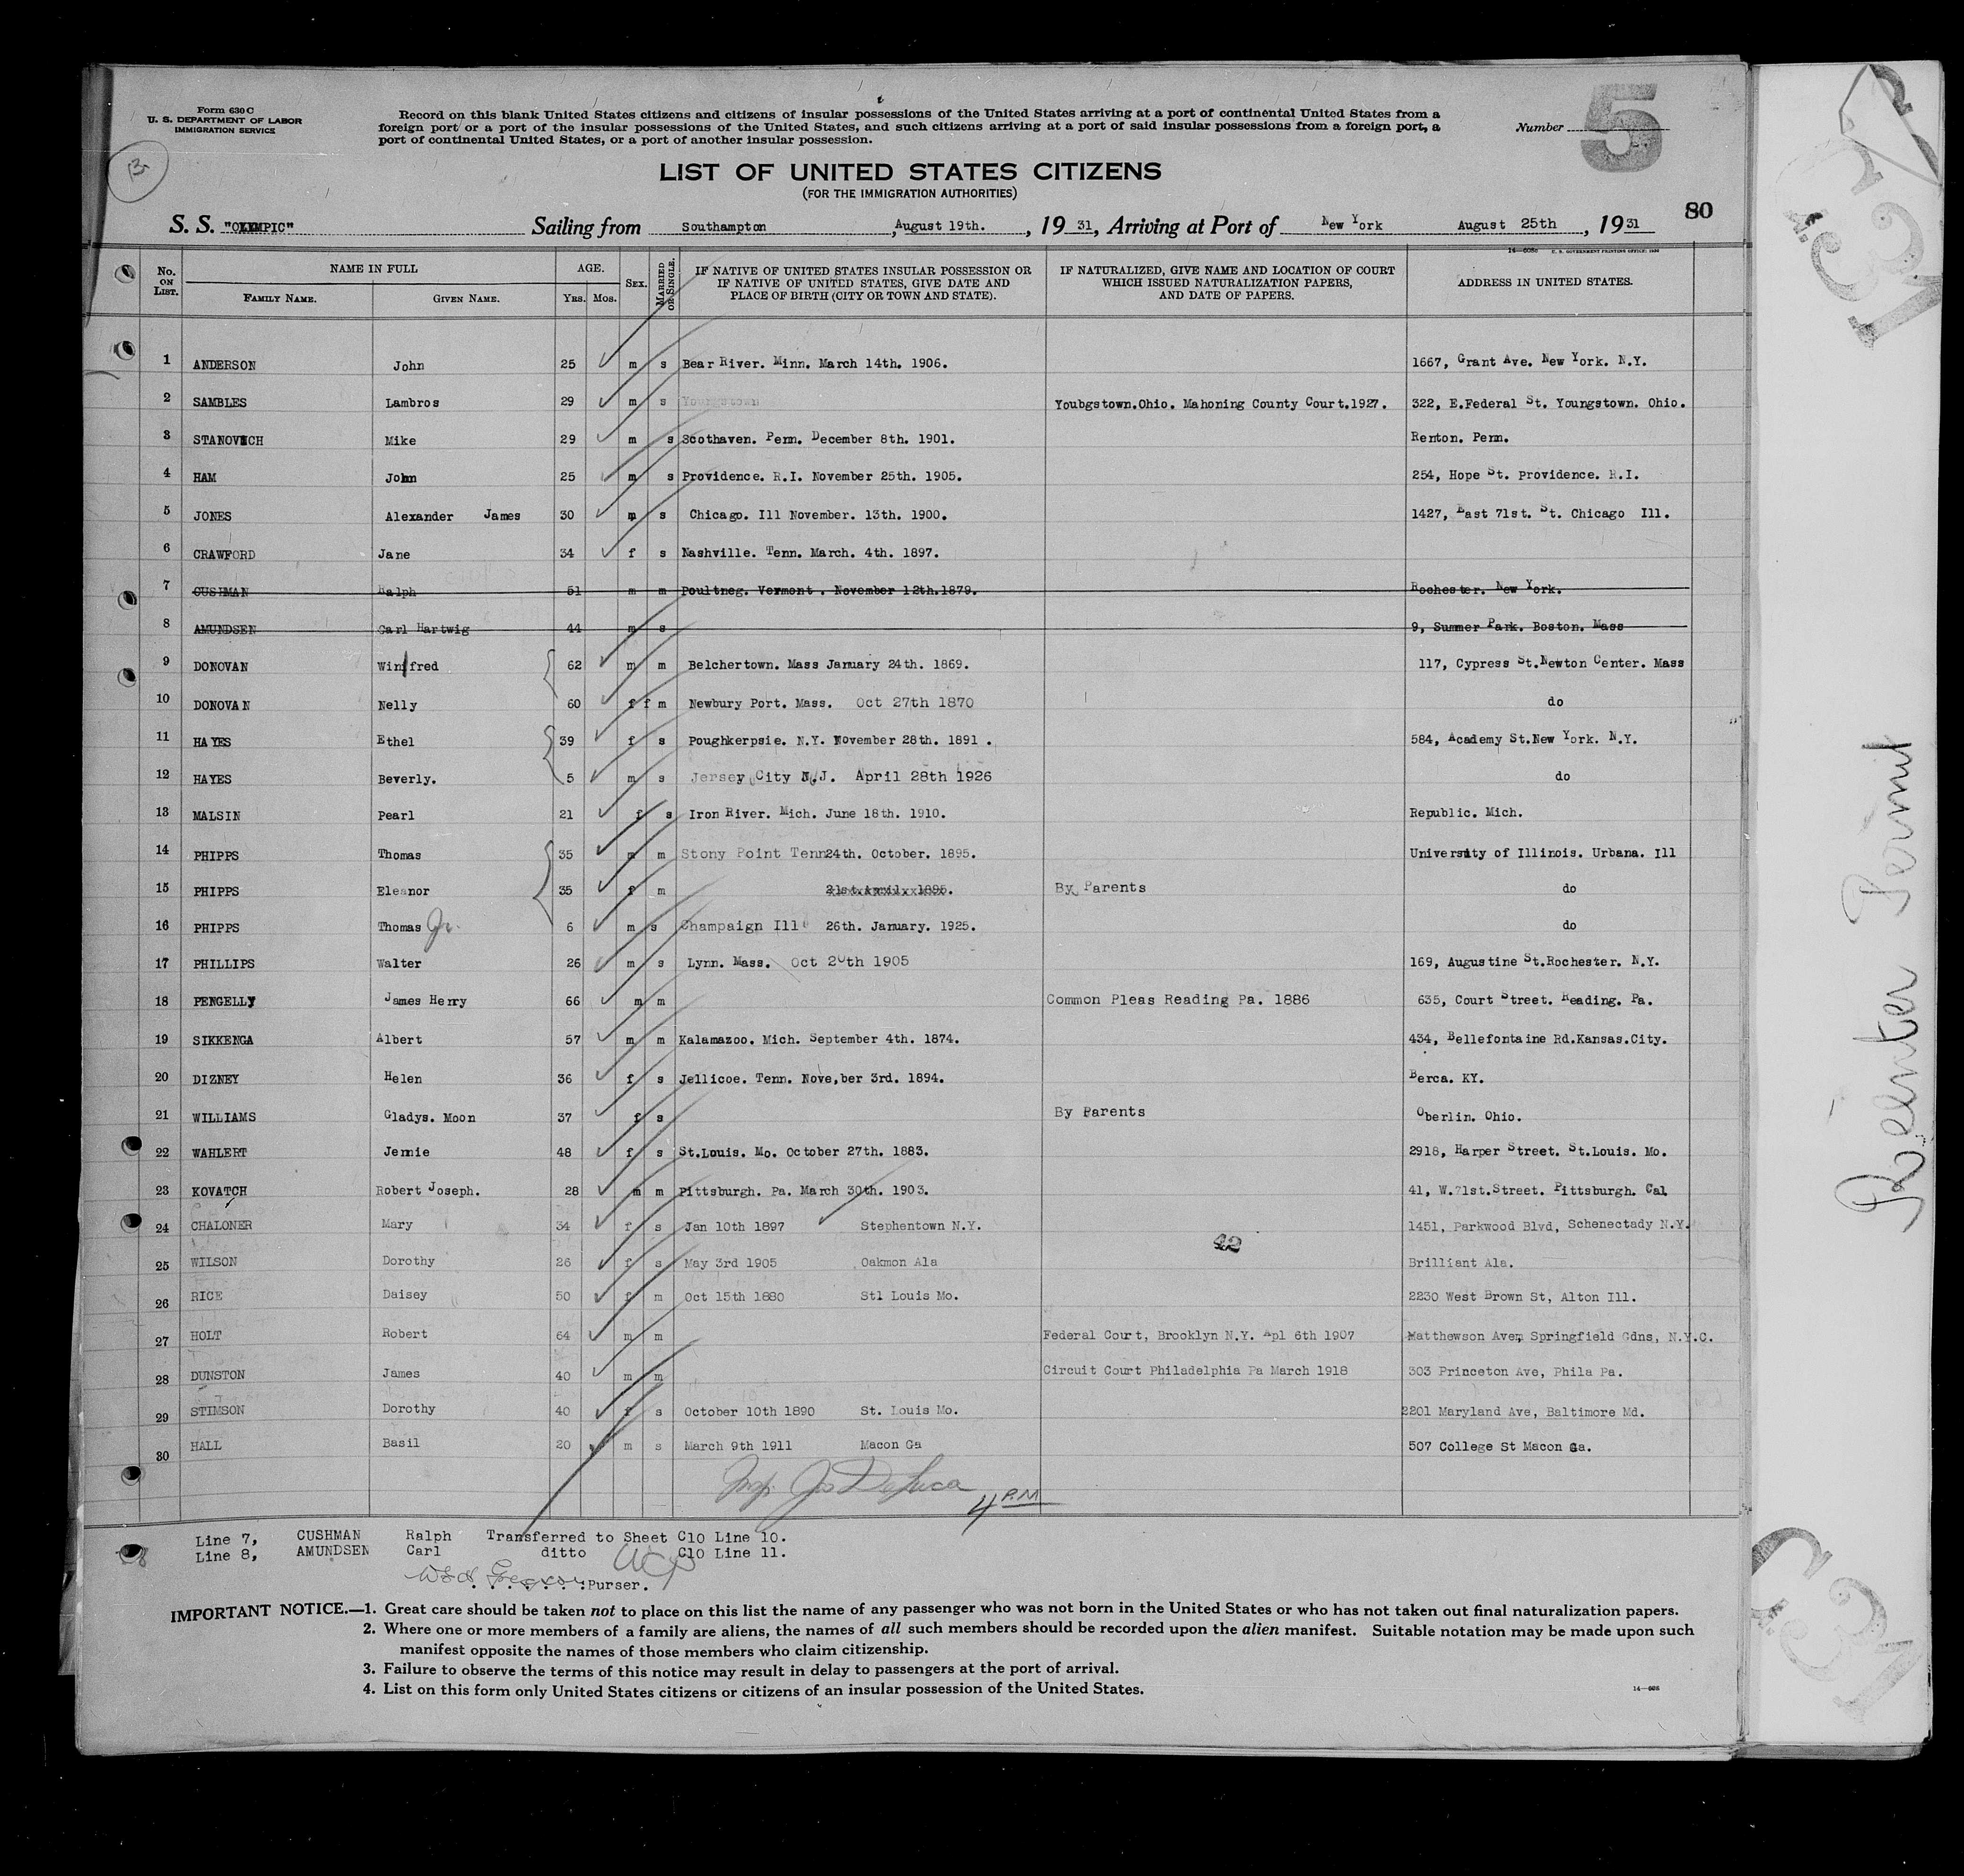 Form 630 C
U. S. DEPARTMENT OF LABOR
IMMIGRATION SERVICE
Record on this blank United States citizens and citizens of insular possessions of the United States arriving at a port of continental United States from a
foreign port or a port of the insular possessions of the United States, and such citizens arriving at a port of said insular possessions from a foreign port, a
port of continental United States, or a port of another insular possession.
Number
5
LIST OF UNITED STATES CITIZENS
(FOR THE IMMIGRATION AUTHORITIES)
80
S. S. "OLYMPIC" Sailing from Southampton, August 19th., 1931, Arriving at Port of New York August 25th, 1931
No. ON LIST. NAME IN FULL FAMILY NAME. GIVEN NAME. AGE. YRS. MOS. SEX. MARRIED OR SINGLE. IF NATIVE OF UNITED STATES INSULAR POSSESSION OR IF NATIVE OF UNITED STATES, GIVE DATE AND PLACE OF BIRTH (CITY OR TOWN AND STATE). IF NATURALIZED, GIVE NAME AND LOCATION OF COURT WHICH ISSUED NATURALIZATION PAPERS, AND DATE OF PAPERS. ADDRESS IN UNITED STATES.
1 ANDERSON John 25 m s Bear River. Minn. March 14th. 1906. 1667, Grant Ave. New York. N.Y.
2 SAMBLES Lambros 29 m s Youngstown Youbgstown.Ohio. Mahoning County Court.1927. 322, E.Federal St. Youngstown. Ohio.
3 STANOVICH Mike 29 m s Scothaven. Penn. December 8th. 1901. Renton. Penn.
4 HAM John 25 m s Providence. R.I. November 25th. 1905. 254, Hope St. Providence. R.I.
5 JONES Alexander James 30 m s Chicago. Ill November. 13th. 1900. 1427, East 71st. St. Chicago Ill.
6 CRAWFORD Jane 34 f s Nashville. Tenn. March. 4th. 1897.
7 CUSHMAN Ralph 51 m m Poultneg. Vermont . November 12th.1879. Rochester. New York.
8 AMUNDSEN Carl Hartwig 44 m s 9, Summer Park. Boston. Mass
9 DONOVAN Winfred 62 m m Belchertown. Mass January 24th. 1869. 117, Cypress St.Newton Center. Mass
10 DONOVAN Nelly 60 f f m Newbury Port. Mass. Oct 27th 1870 do
11 HAYES Ethel 39 f s Poughkerpsie. N.Y. November 28th. 1891 . 584, Academy St.New York. N.Y.
12 HAYES Beverly. 5 m s Jersey City N.J. April 28th 1926 do
13 MALSIN Pearl 21 f s Iron River. Mich. June 18th. 1910. Republic. Mich.
14 PHIPPS Thomas 35 m m Stony Point Tenn 24th. October. 1895. University of Illinois. Urbana. Ill
15 PHIPPS Eleanor 35 f m 21st.April. 1895. By Parents do
16 PHIPPS Thomas Jr. 6 m s Champaign Ill 26th. January. 1925. do
17 PHILLIPS Walter 26 m s Lynn. Mass. Oct 20th 1905 169, Augustine St.Rochester. N.Y.
18 PENGELLY James Henry 66 m m Common Pleas Reading Pa. 1886 635, Court Street. Reading. Pa.
19 SIKKENGA Albert 57 m m Kalamazoo. Mich. September 4th. 1874. 434, Bellefontaine Rd.Kansas.City.
20 DIZNEY Helen 36 f s Jellicoe. Tenn. Nove,ber 3rd. 1894. Berca. KY.
21 WILLIAMS Gladys. Moon 37 f s By Parents Oberlin. Ohio.
22 WAHLERT Jennie 48 f s St.Louis. Mo. October 27th. 1883. 2918, Harper Street. St.Louis. Mo.
23 KOVATCH Robert Joseph. 28 m m Pittsburgh. Pa. March 30th. 1903. 41, W.71st.Street. Pittsburgh. Cal
24 CHALONER Mary 34 f s Jan 10th 1897 Stephentown N.Y. 1451, Parkwood Blvd, Schenectady N.Y.
42
25 WILSON Dorothy 26 f s May 3rd 1905 Oakmon Ala Brilliant Ala.
26 RICE Daisey 50 f m Oct 15th 1880 Stl Louis Mo. 2230 West Brown St, Alton Ill.
27 HOLT Robert 64 m m Federal Court, Brooklyn N.Y. Apl 6th 1907 Matthewson Ave, Springfield Gdns, N.Y.C.
28 DUNSTON James 40 m m Circuit Court Philadelphia Pa March 1918 303 Princeton Ave, Phila Pa.
29 STIMSON Dorothy 40 f s October 10th 1890 St. Louis Mo. 2201 Maryland Ave, Baltimore Md.
30 HALL Basil 20 m s March 9th 1911 Macon Ga 507 College St Macon Ga.
Insp. Jos DeLuca
4 P.M
Line 7, CUSHMAN Ralph Transferred to Sheet C10 Line 10.
Line 8, AMUNDSEN Carl ditto C10 Line 11.
Purser.
IMPORTANT NOTICE.—1. Great care should be taken not to place on this list the name of any passenger who was not born in the United States or who has not taken out final naturalization papers.
2. Where one or more members of a family are aliens, the names of all such members should be recorded upon the alien manifest. Suitable notation may be made upon such
manifest opposite the names of those members who claim citizenship.
3. Failure to observe the terms of this notice may result in delay to passengers at the port of arrival.
4. List on this form only United States citizens or citizens of an insular possession of the United States.
Reenter Permit